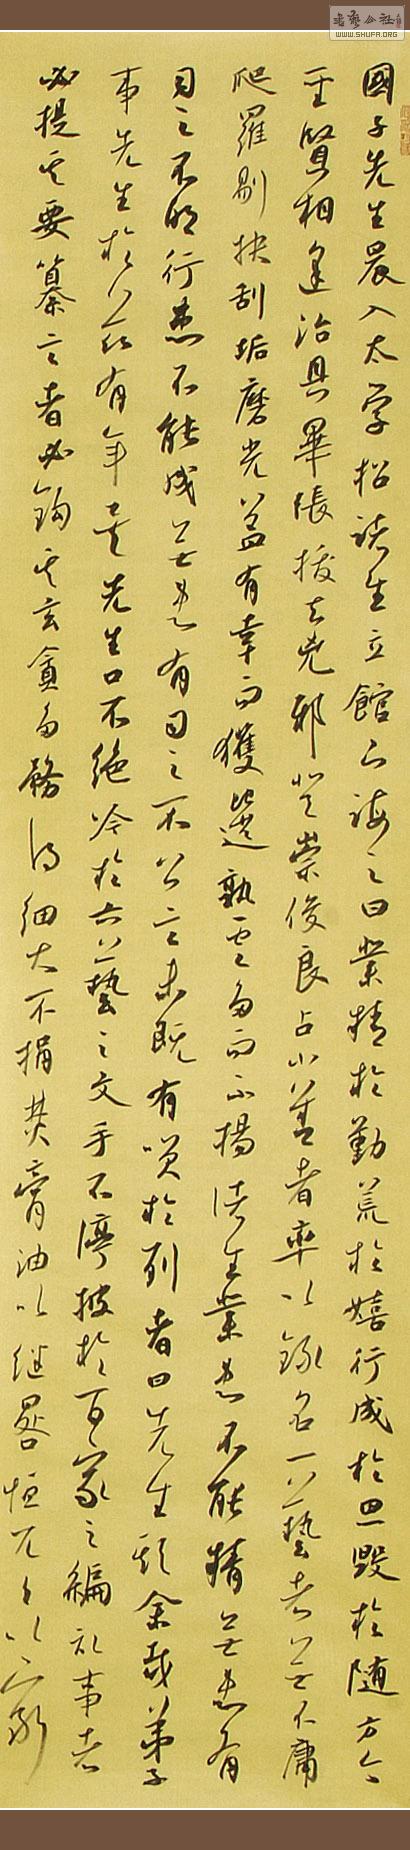 書藝公社
WWW.SHUFA.ORG
國子先生晨入太學招諸生立館下誨之曰業精於勤荒於嬉行成於思毀於随方今
聖賢相逢治具畢張拔去兇邪登崇俊良占小善者率以錄名一藝者無不庸
爬羅剔抉刮垢磨光蓋有幸而獲選孰云多而不揚諸生業患不能精無患有
司之不明行患不能成無患有司之不公言未既有笑於列者曰先生欺余哉弟子
事先生於茲有年矣先生口不絕吟於六藝之文手不停披於百家之編記事者
必提其要纂言者必鈎其玄貪多務得細大不捐焚膏油以繼晷恒兀兀以窮